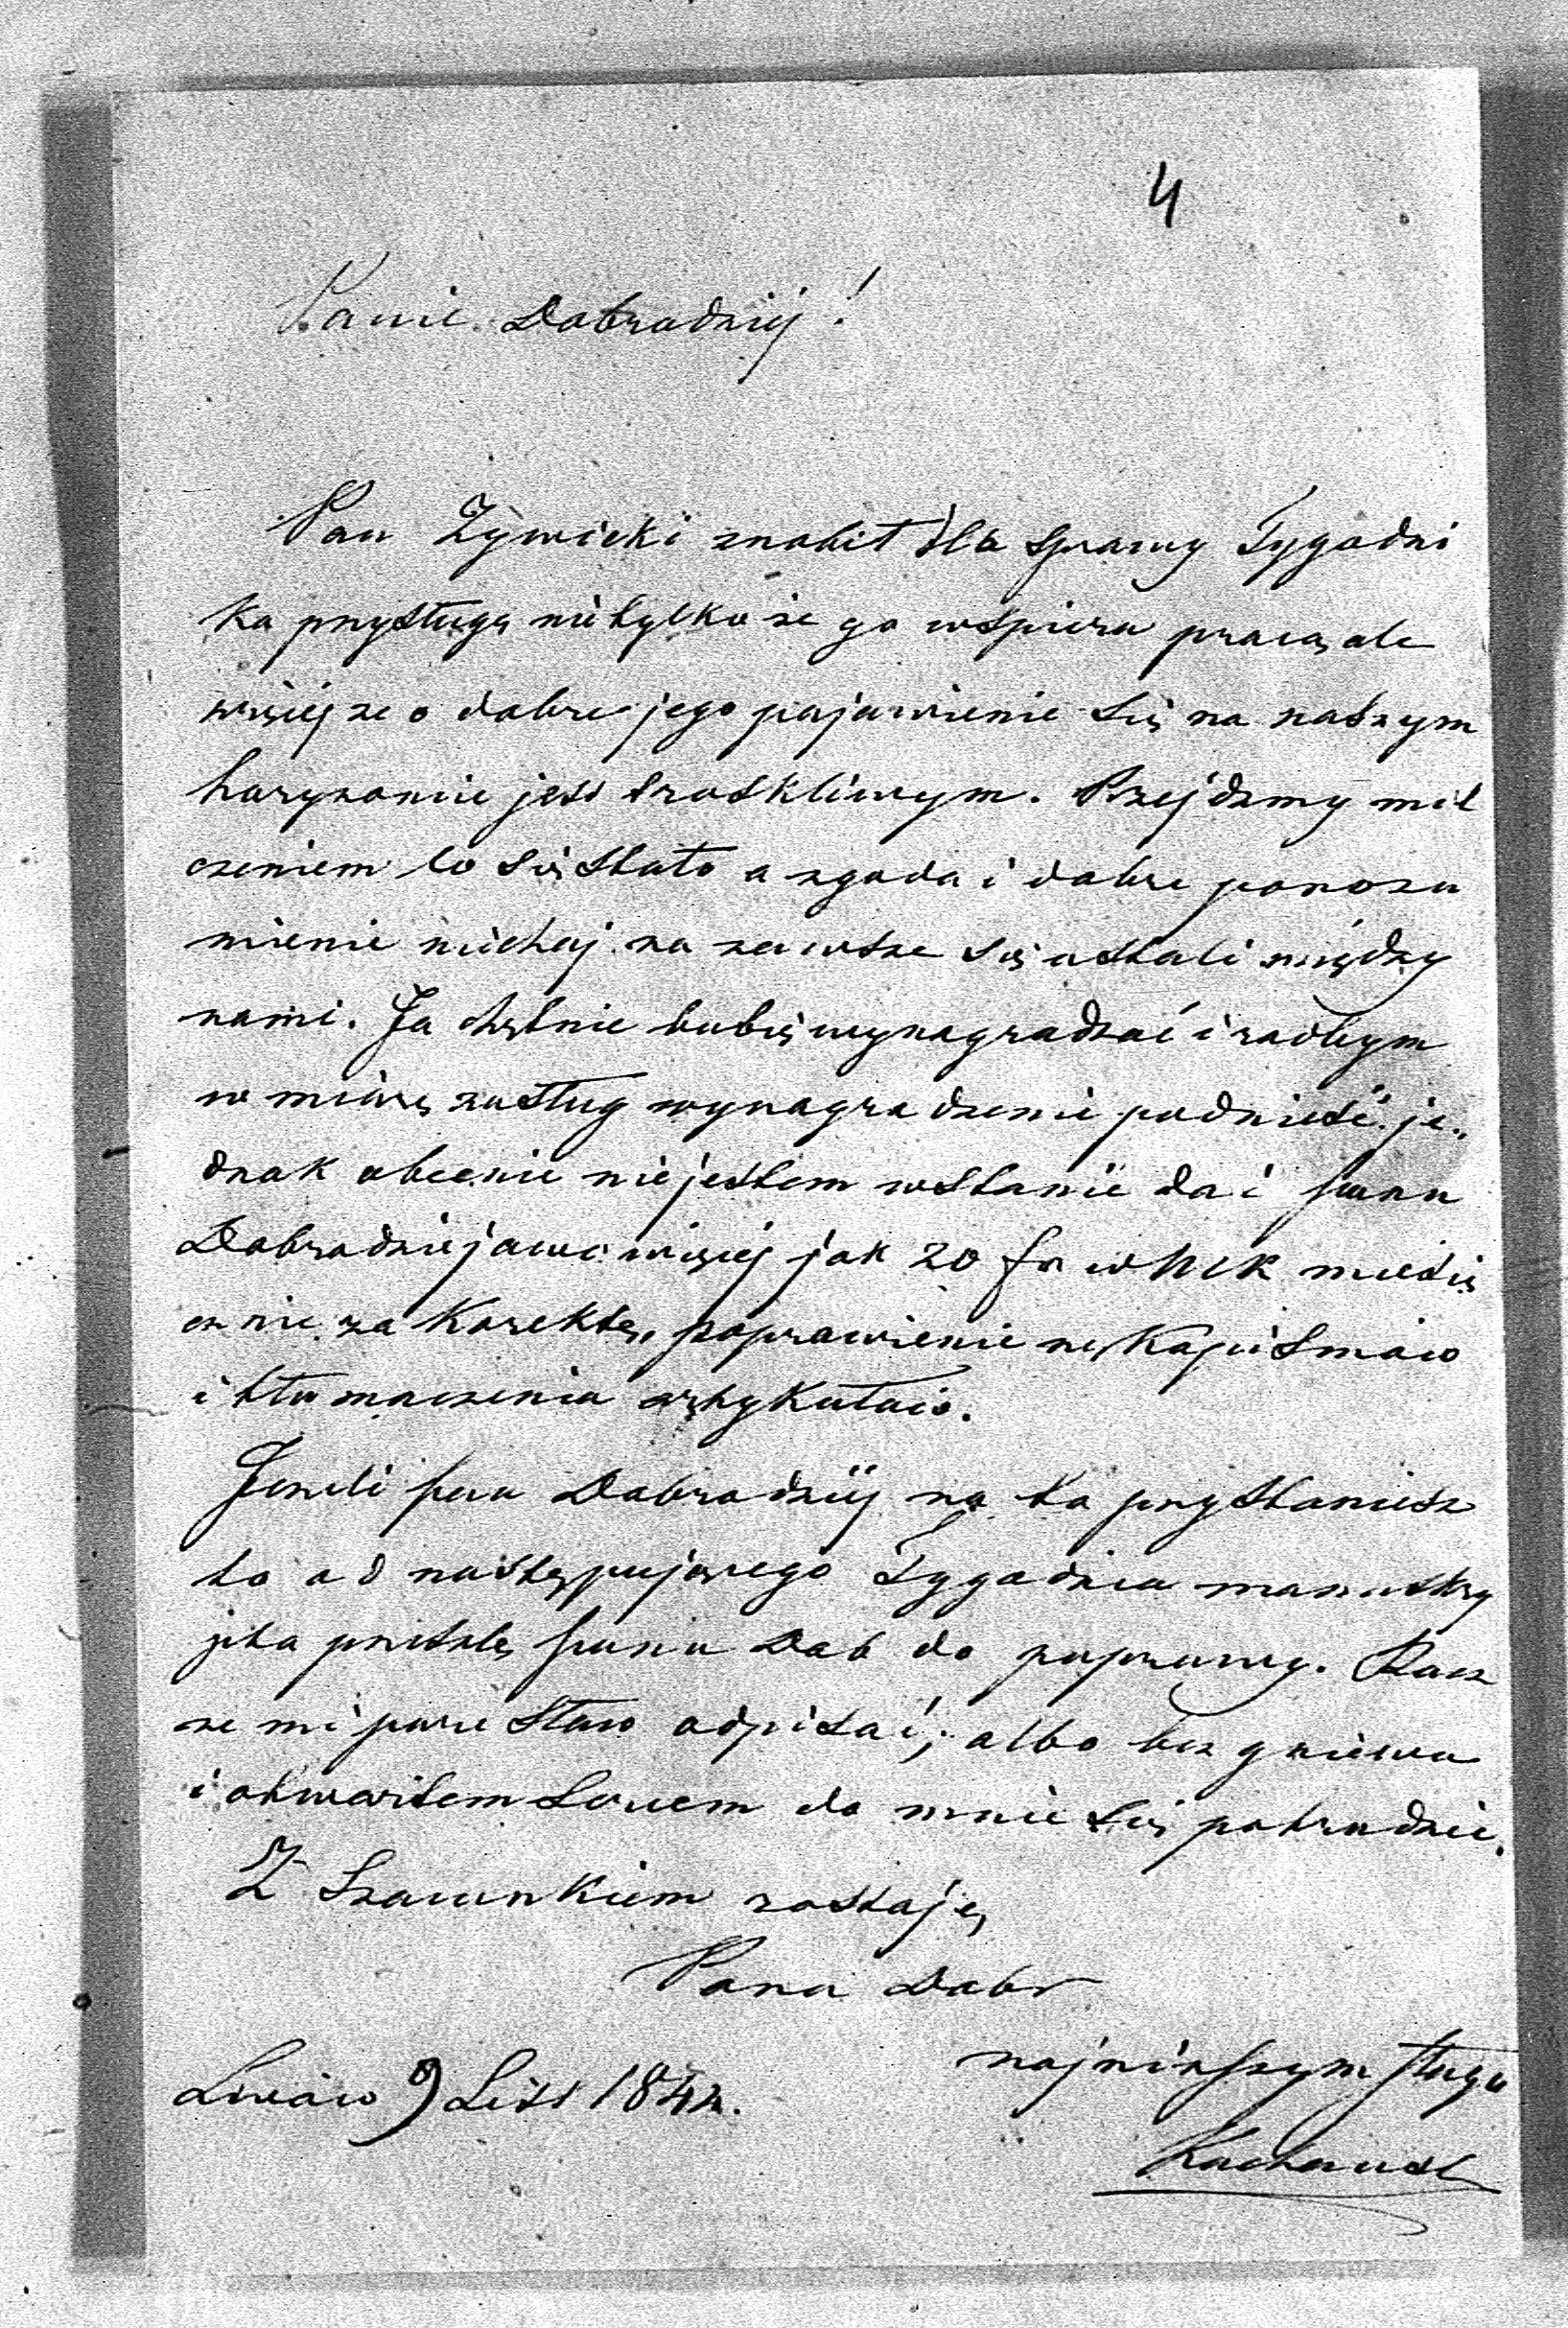 4
Panie Dobrodziej!
Pan Żywicki zrobił dla sprawy Tygodni
ka przysługę nietylko że go wspiera pracą ale
więcej że o dobre jego pojawienie się na naszym
horyzoncie jest troskliwym. Przejdzmy mil
czeniem co się stało a zgoda i dobre porozu
mienie niechaj na zawsze się ustali między
nami. Ja chętnie lubię wynagradzać i radbym
w miarę zasług wynagrodzenie podnieść je„
dnak obecnie nie jestem wstanie dać panu
Dobrodziejowi więcej jak 20 fr w MK miesię
cznie za korektę, poprawienie rękopismów
i tłumaczenia artykułów.
Jeżeli pan Dobrodziej na to przystaniesz
to od następującego Tygodnia manuskry
pta prześlę panu Dob do poprawy. Racz
że mi parę słów odpisać; albo bez gniewu
i otwartem sercem do mnie się potrudzić.
Z Szacunkiem zostaję
Pana Dobr
najniższym sługą
Lwów 9 List 1842.